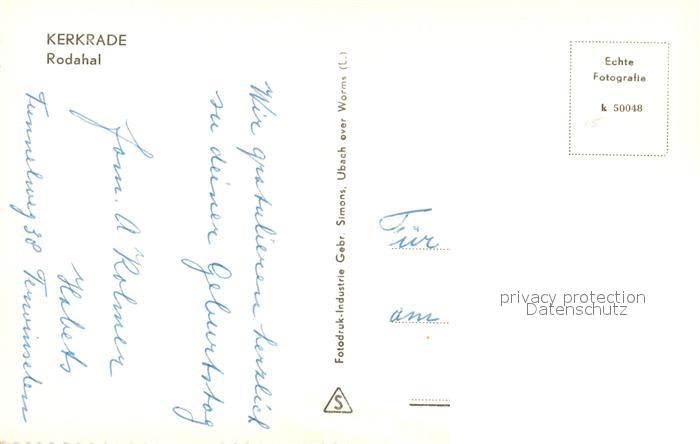 KERKRADE
Rodahal
Wir gratulieren herzlich
zu deiner Geburtstag
Fam. A Kolmer
Habets
Tunnelweg 38 Terwinselen
Fotodruk-Industrie Gebr. Simons, Ubach over Worms (L.)
S
Echte
Fotografie
k 50048
15
Für
am
privacy protection
Datenschutz